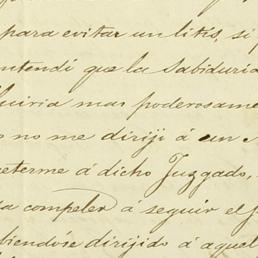 para evitar un litis, si p
ntendí que la Sabiduría
luiria mas poderosame
o no me diriji á un
meterme á dicho Juzgado,
a compeler á seguir el J
biendose dirijido á aquel